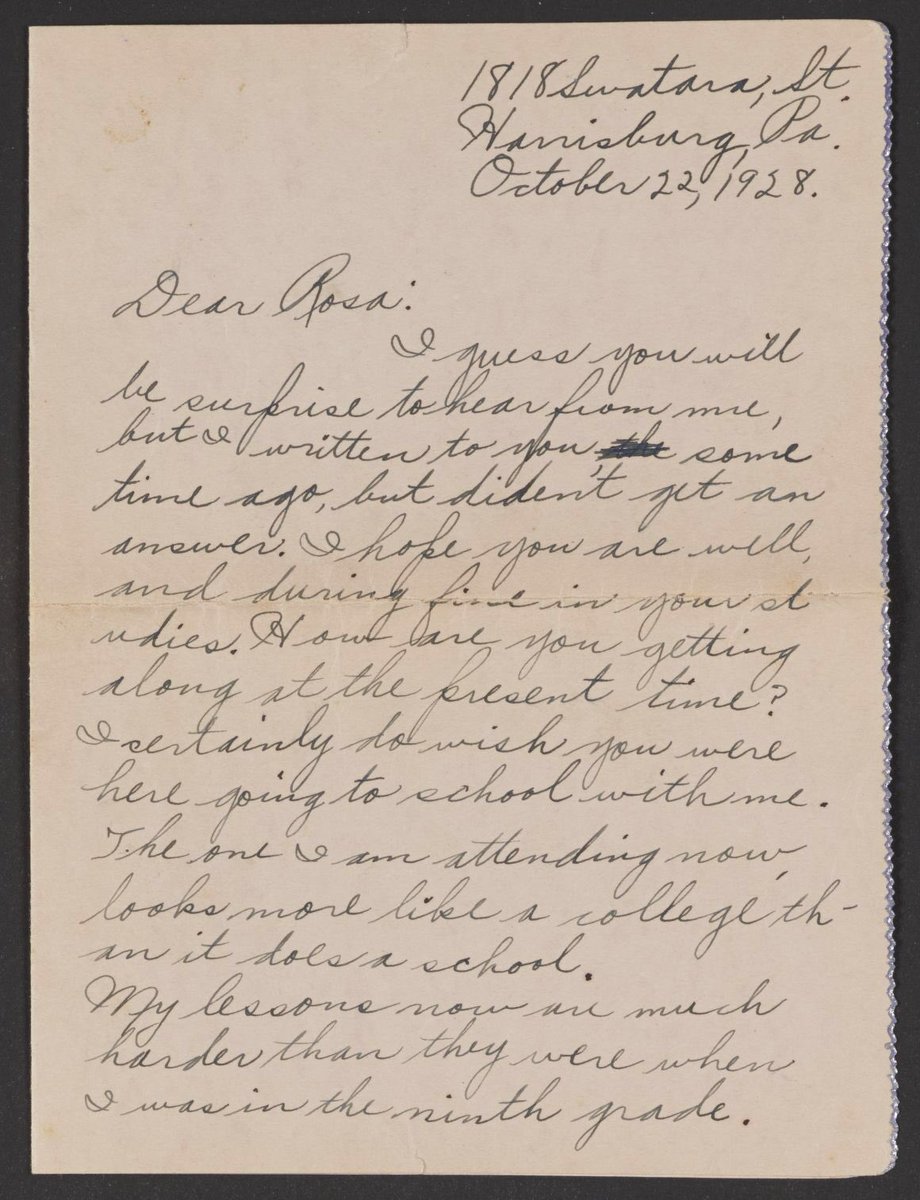 1818 Swatara, St.
Harrisburg, Pa.
October 22, 1928.
Dear Rosa:
I guess you will
be surprise to hear from me,
but I written to you, the some
time ago, but diden't get an
answer. I hope you are well,
and during fine in your st
udies. How are you getting
along at the present time?
I certainly do wish you were
here going to school with me.
The one I am attending now,
looks more like a college th-
an it does a school.
My lessons now are much
harder than they were when
I was in the ninth grade.